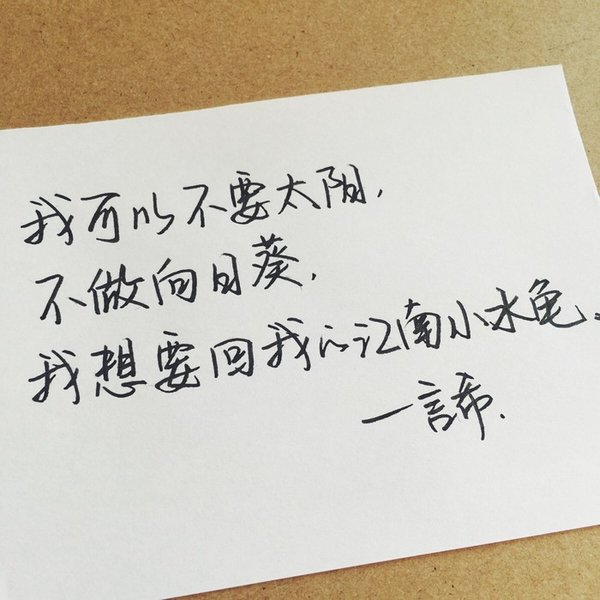 我可以不要太阳,
不做向日葵,
我想要回我心江南小水龟。
一言希.